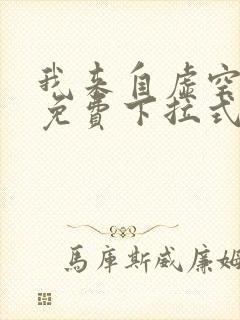 我来自虚空
免費下拉式
馬庫斯威廉姆